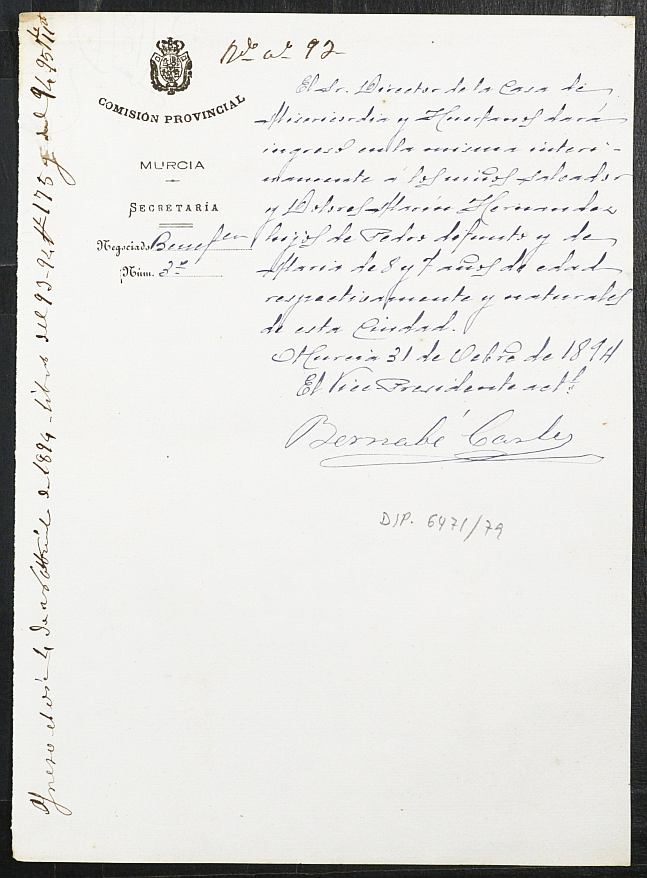 COMISIÓN PROVINCIAL
MURCIA
SECRETARÍA
Negociado Benefcia
Núm. 3º
Nº 92
El Sr. Director de la Casa de
Misericordia y Huerfanos dará
ingreso en la misma interi-
namente á los niños Salvador
y Dolores Marín Hernandez
hijos de Pedro difunto y de
Maria de 8 y 7 años de edad
respectivamente y naturales
de esta Ciudad.
Murcia 31 de Octbre de 1894
El Vice Presidente actl
Bernabé
DIP. 6471/79
Ingreso el día 4 de de 1894 - Libro del 93-94 fº 175 y del 94-95 fº